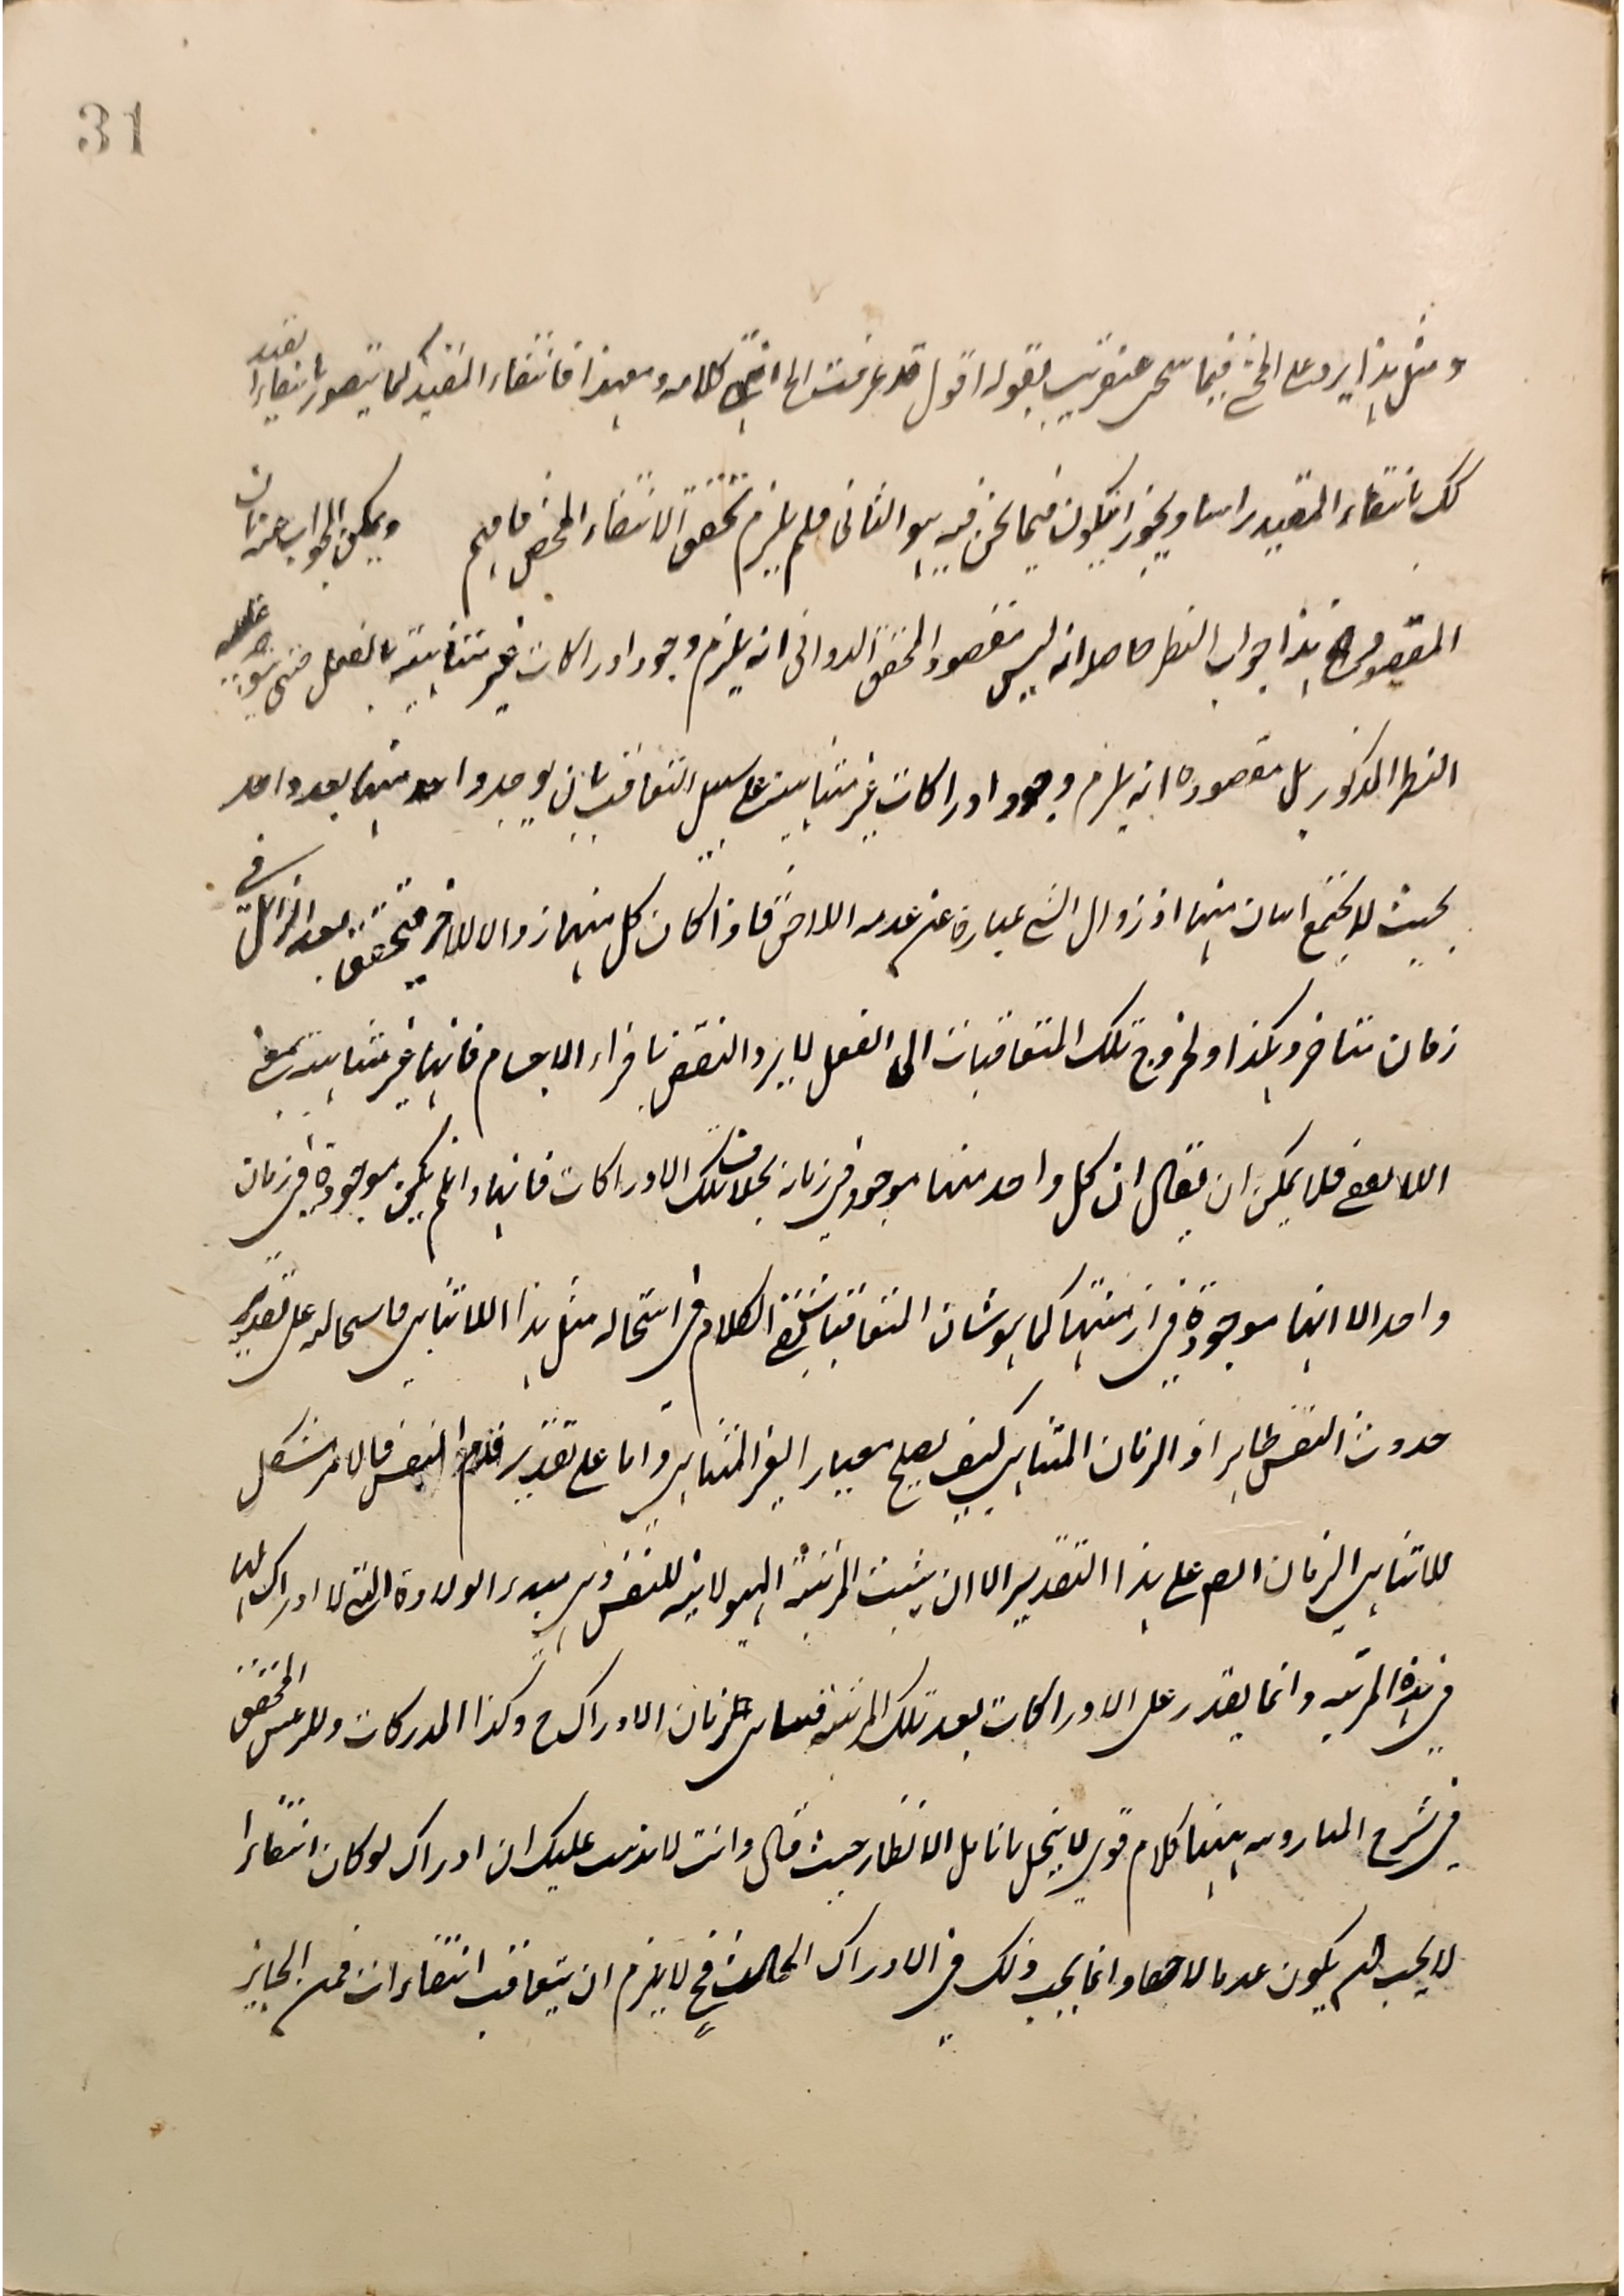 31
ومثل هذا يرد على المحشي فيما سيجي عنقريب بقوله اقول قد عرفت الخ انتهى كلامه ومعهذا فانتفاء المقيد كما يتصور بانتفاء القيد
كك بانتفاء المقيد راسا ويجوز ان يكون فيما نحن فيه هو الثاني فلم يلزم تحقق الانتفاء المحض فافهم ويمكن الجواب عنه بان
المقصود الخ هذا جواب النظر حاصله انه ليس مقصود المحقق الدواني انه يلزم وجود ادراكات غير متناهية بالفعل حتى يتوجه عليه
النظر المذكور بل مقصوده انه يلزم وجود ادراكات غير متناهية على سبيل التعاقب بان يوجد واحد منها بعد واحد
بحيث لا يجتمع اثنان منها اذ زوال الشيء عبارة عن عدمه اللاحق فاذا كان كل منهما زوالا للاخر فيتحقق بعد الزائل في
زمان متاخر وهكذا ولخروج تلك المتعاقبات الى الفعل لا يرد النقض باجزاء الاجسام فانها غير متناهية بمعنى
اللا يقفي فلا يمكن ان يقال ان كل واحد منها موجود في زمانه بخلاف تلك الادراكات فانها وان لم يكن موجودة في زمان
واحد الا انها موجودة في ازمنتها كما هو شان المتعاقبات بقي الكلام في استحالة مثل هذا اللاتناهي فاستحالته على تقدير
حدوث النفس ظاهر اذ الزمان المتناهي كيف يصلح معيار الغير المتناهي واما على تقدير قدم النفس فالامر مشكل
للاتناهي الزمان ايضا على هذا التقدير الا ان يثبت المرتبة الهيولانية للنفس وهي مبدء الولادة التي لا ادراك لها
في هذه المرتبة وانما يقدر على الادراكات بعد تلك المرتبة فتناهي زمان الادراك ح وكذا المدركات وللمحقق
في شرح المبارويه ههنا كلام قوي لا ينحل بانامل الانظار حيث قال وانت لا يذهب عليك ان ادراك لو كان انتفاء
لا يجب ان يكون عدما لاحقا وانما يجب ذلك في الادراك الحادث فح لا يلزم ان يتعاقب انتفاءات فمن الجايز